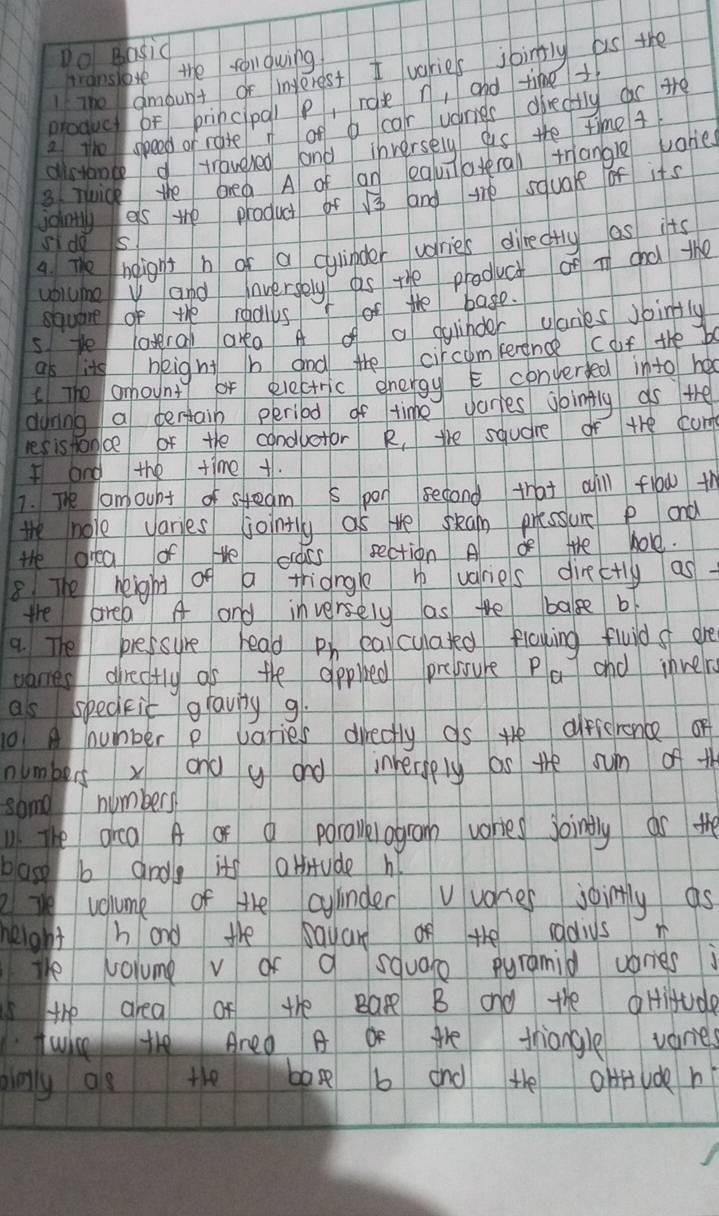 Do Basic
translate the following
1. The amount of interest I varies jointly as the
product of principal P, rate r, and time t.
2 The speed or rate r of a car varies directly as the
distance d traveled and inversely as the time t.
3. Twice the area A of an equilateral triangle varies
jointly as the product of √3 and the square of its
side s.
4. The height h of a cylinder varies directly as its
volume V and inversely as the product of π and the
square of the radius r of the base.
5. The lateral area A of a cylinder varies jointly
as its height h and the circumference C of the b
6 The amount of electric energy E converted into hea
during a certain period of time varies jointly as the
resistance of the conductor R, the square of the curre
I and the time t.
7. The amount of steam s per second that will flow th
the hole varies jointly as the steam pressure P and
the area of the cross section A of the hole.
8. The height of a triangle h varies directly as
the area A and inversely as the base b.
9. The pressure head Ph calculated flowing fluids are
varies directly as the applied pressure Pa and invers
as specific gravity g.
10. A number p varies directly as the difference of
numbers x and y and inversely as the sum of th
same numbers
11. The area A of a parallelogram varies jointly as the
base b and its altitude h.
2 The volume of the cylinder V varies jointly as
height h and the square of the radius r
The volume v of a square pyramid varies j
as the area of the Base B and the altitude
twice the Area A of the triangle varies
jointly as the base b and the altitude h.